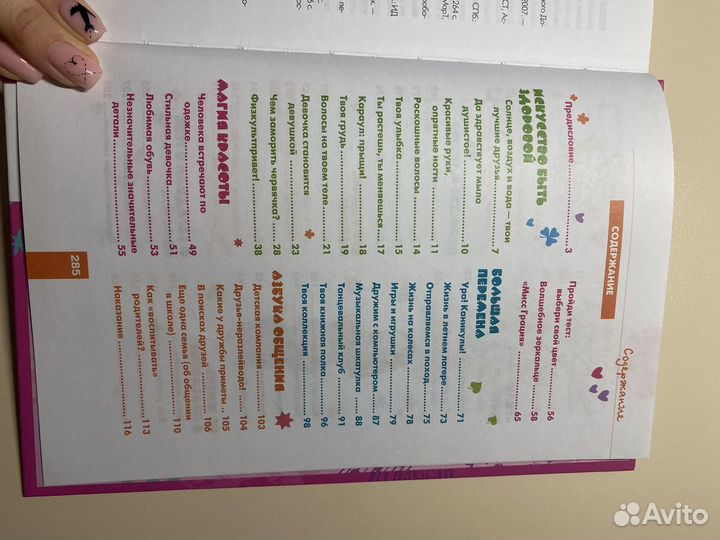 СОДЕРЖАНИЕ
Содержание
Предисловие 3
ИСКУССТВО БЫТЬ
ЗДОРОВОЙ
Солнце, воздух и вода — твои
лучшие друзья 7
Да здравствует мыло
душистое! 10
Красивые руки,
опрятные ногти 11
Роскошные волосы 14
Твоя улыбка 15
Ты растешь, ты меняешься 17
Караул: прыщи! 18
Твоя грудь 19
Волосы на твоем теле 21
Девочка становится
девушкой 23
Чем заморить червячка? 28
Физкультпривет! 38
МАГИЯ КРАСОТЫ
Человека встречают по
одежке 49
Стильная девочка 51
Любимая обувь 53
Незначительные значительные
детали 55
Пройди тест:
выбери свой цвет 56
Волшебное зеркальце 58
«Мисс Грация» 65
БОЛЬШАЯ
ПЕРЕМЕНА
Ура! Каникулы! 71
Жизнь в летнем лагере 73
Отправляемся в поход 75
Жизнь на колесах 78
Игры и игрушки 79
Дружим с компьютером 87
Музыкальная шкатулка 88
Танцевальный клуб 91
Твоя книжная полка 96
Твоя коллекция 98
АЗБУКА ОБЩЕНИЯ
Детская компания 103
Друзья-неразлейвода! 104
Какие у дружбы приметы 105
В поисках друзей 106
Еще одна семья (об общении
в школе) 110
Как «воспитывать»
родителей? 113
Наказание 116
285
Avito